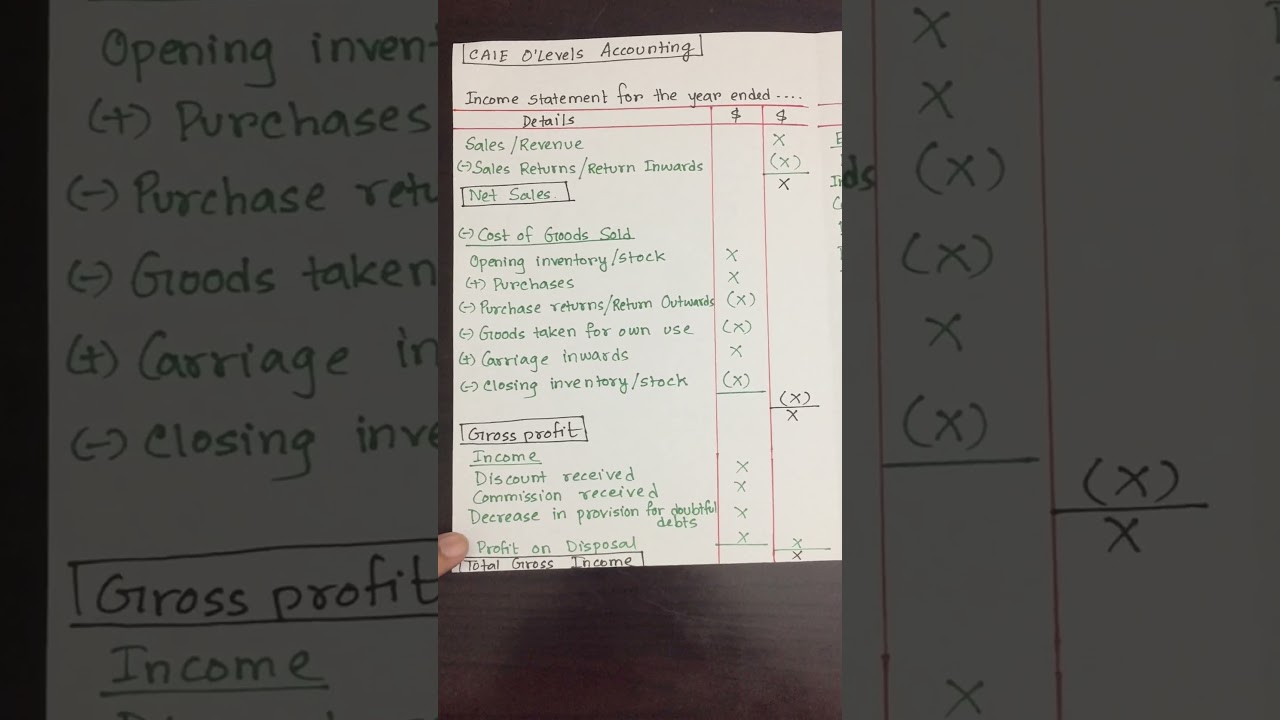 CAIE O'Levels Accounting
Income statement for the year ended ....
Details $ $
Sales/Revenue X
(-) Sales Returns/Return Inwards (X)
Net Sales. X
(-) Cost of Goods Sold
Opening inventory/stock X
(+) Purchases X
(-) Purchase returns/Return Outwards (X)
(-) Goods taken for own use (X)
(+) Carriage inwards X
(-) Closing inventory/stock (X)
(X)
X
Gross profit
Income
Discount received X
Commission received X
Decrease in provision for doubtful debts X
Profit on Disposal X X
Total Gross Income X